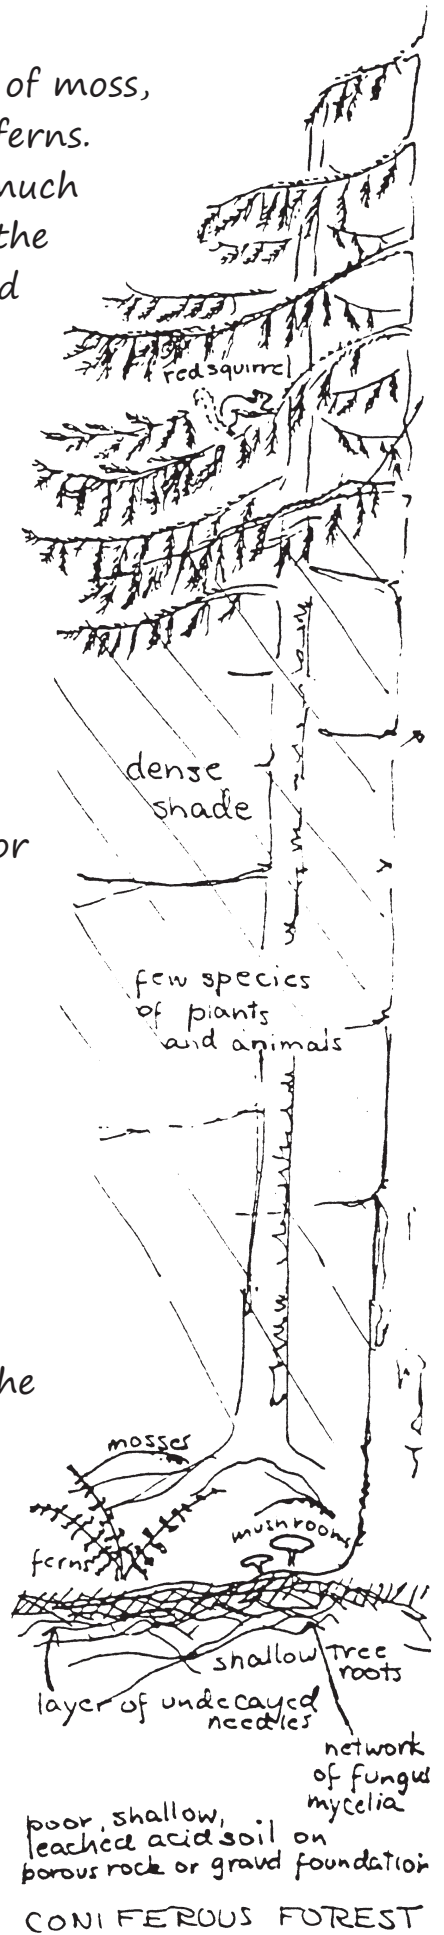 of moss,
ferns.
much
the
d
red squirrel
dense
shade
or
few species
of plants
and animals
he
mosses
mushrooms
ferns
shallow tree
roots
layer of undecayed
needles
network
of fungus
mycelia
poor, shallow,
leached acid soil on
porous rock or gravel foundation
CONIFEROUS FOREST